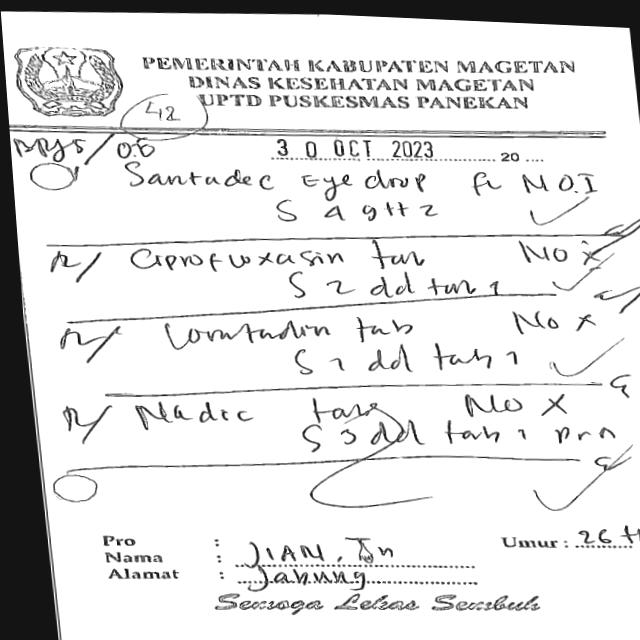 PEMERINTAH KABUPATEN MAGETAN
DINAS KESEHATAN MAGETAN
UPTD PUSKESMAS PANEKAN
412
BPJS / OD
30 OCT 2023 20 ....
Santadec Eye drop fl NO.I
S 4 gtt 2
R/ Ciprofloxasin tab No X
S 2 dd tab 1
R/ Loratadin tab No X
S 1 dd tab 1
R/ Nadic tab No X
S 3 dd tab 1 prn
Pro :
Nama : JIAN, Tn
Umur : 26
Alamat : Jabung
Semoga Lekas Sembuh